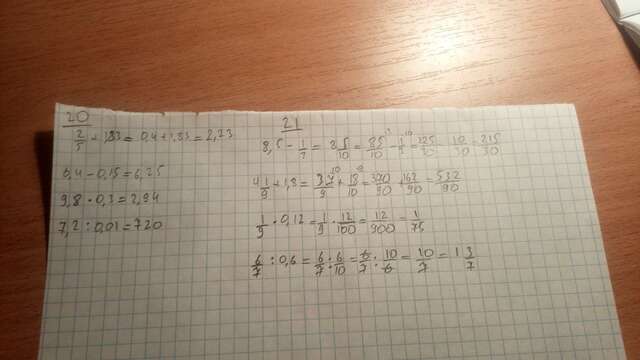 20
2/5 + 1,83 = 0,4 + 1,83 = 2,23
0,4 - 0,15 = 0,25
9,8 · 0,3 = 2,94
7,2 : 0,01 = 720
21
8,5 - 1/3 = 8 5/10 = 85/10 - 1/3 = 225/30 - 10/30 = 215/30
4 1/9 + 1,8 = 37/9 + 18/10 = 370/90 + 162/90 = 532/90
1/9 · 0,12 = 1/9 · 12/100 = 12/900 = 1/75
6/7 : 0,6 = 6/7 : 6/10 = 6/7 · 10/6 = 10/7 = 1 3/7